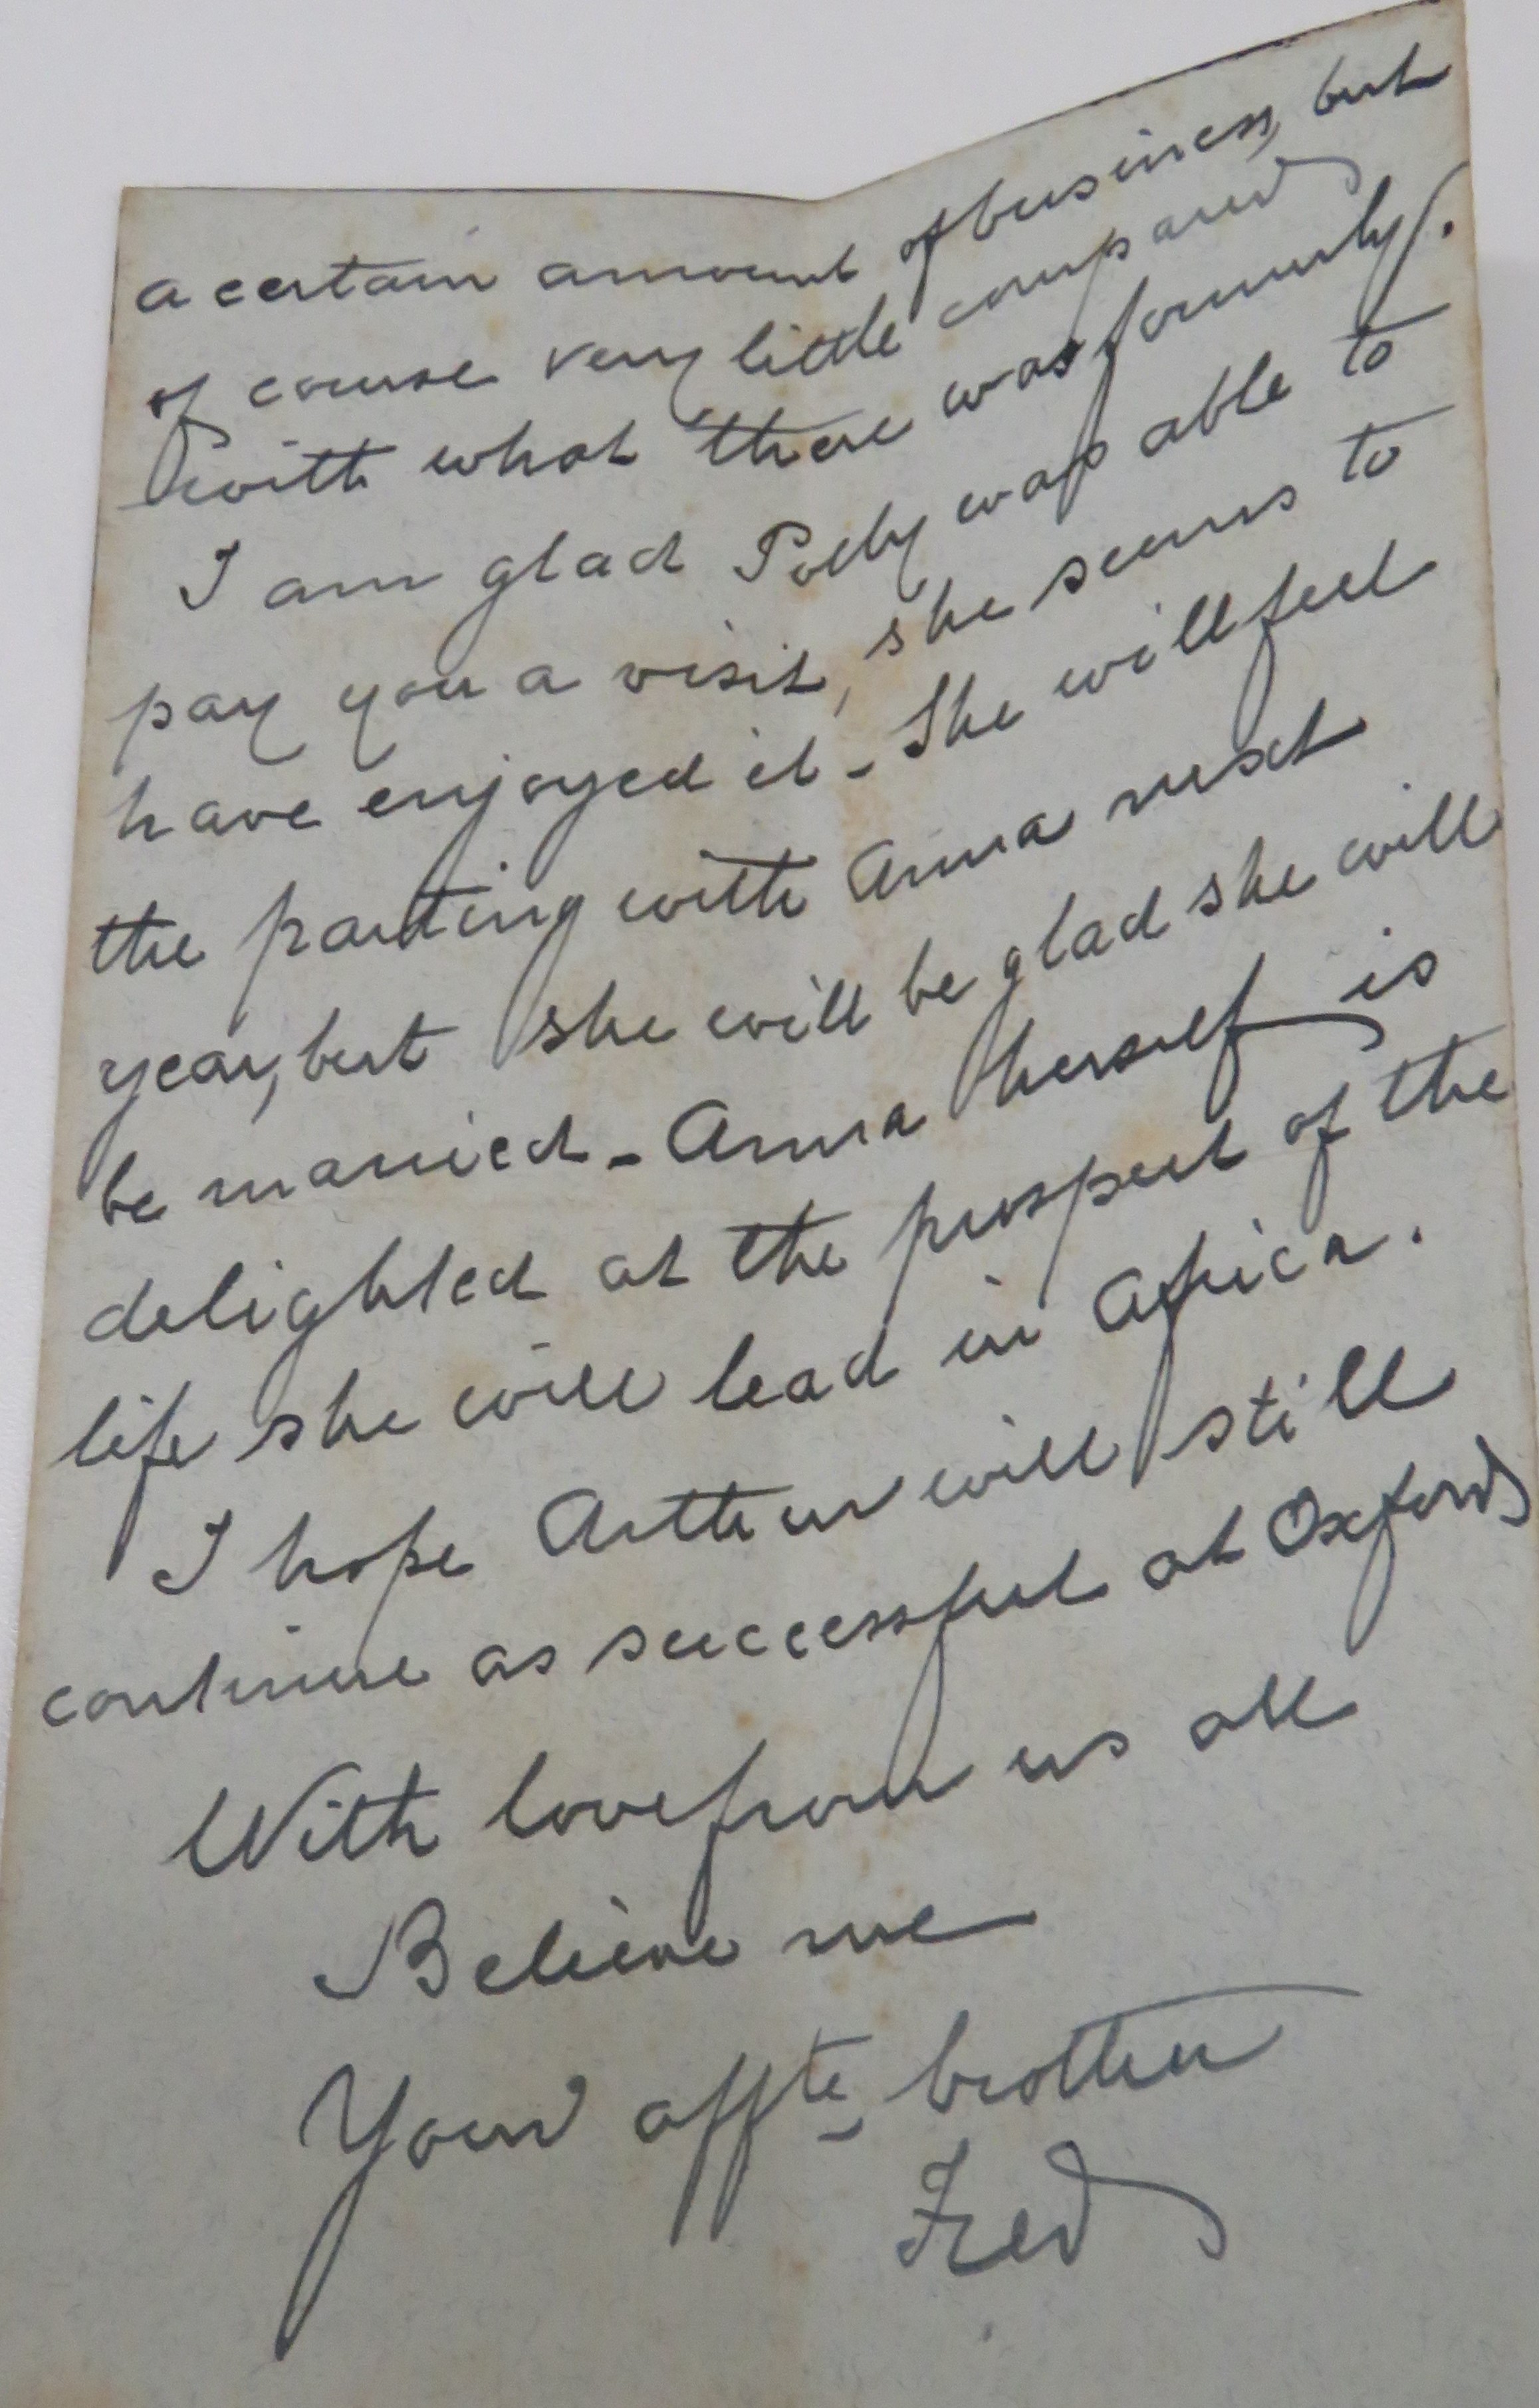 a certain amount of business, but
of course very little compared
with what there was formerly.
I am glad Polly was able to
pay you a visit, she seems to
have enjoyed it - She will feel
the parting with Anna next
year, but she will be glad she will
be married - Anna herself is
delighted at the prospect of the
life she will lead in Africa.
I hope Arthur will still
continue as successful at Oxford
With love from us all
Believe me
Your affte brother
Fred